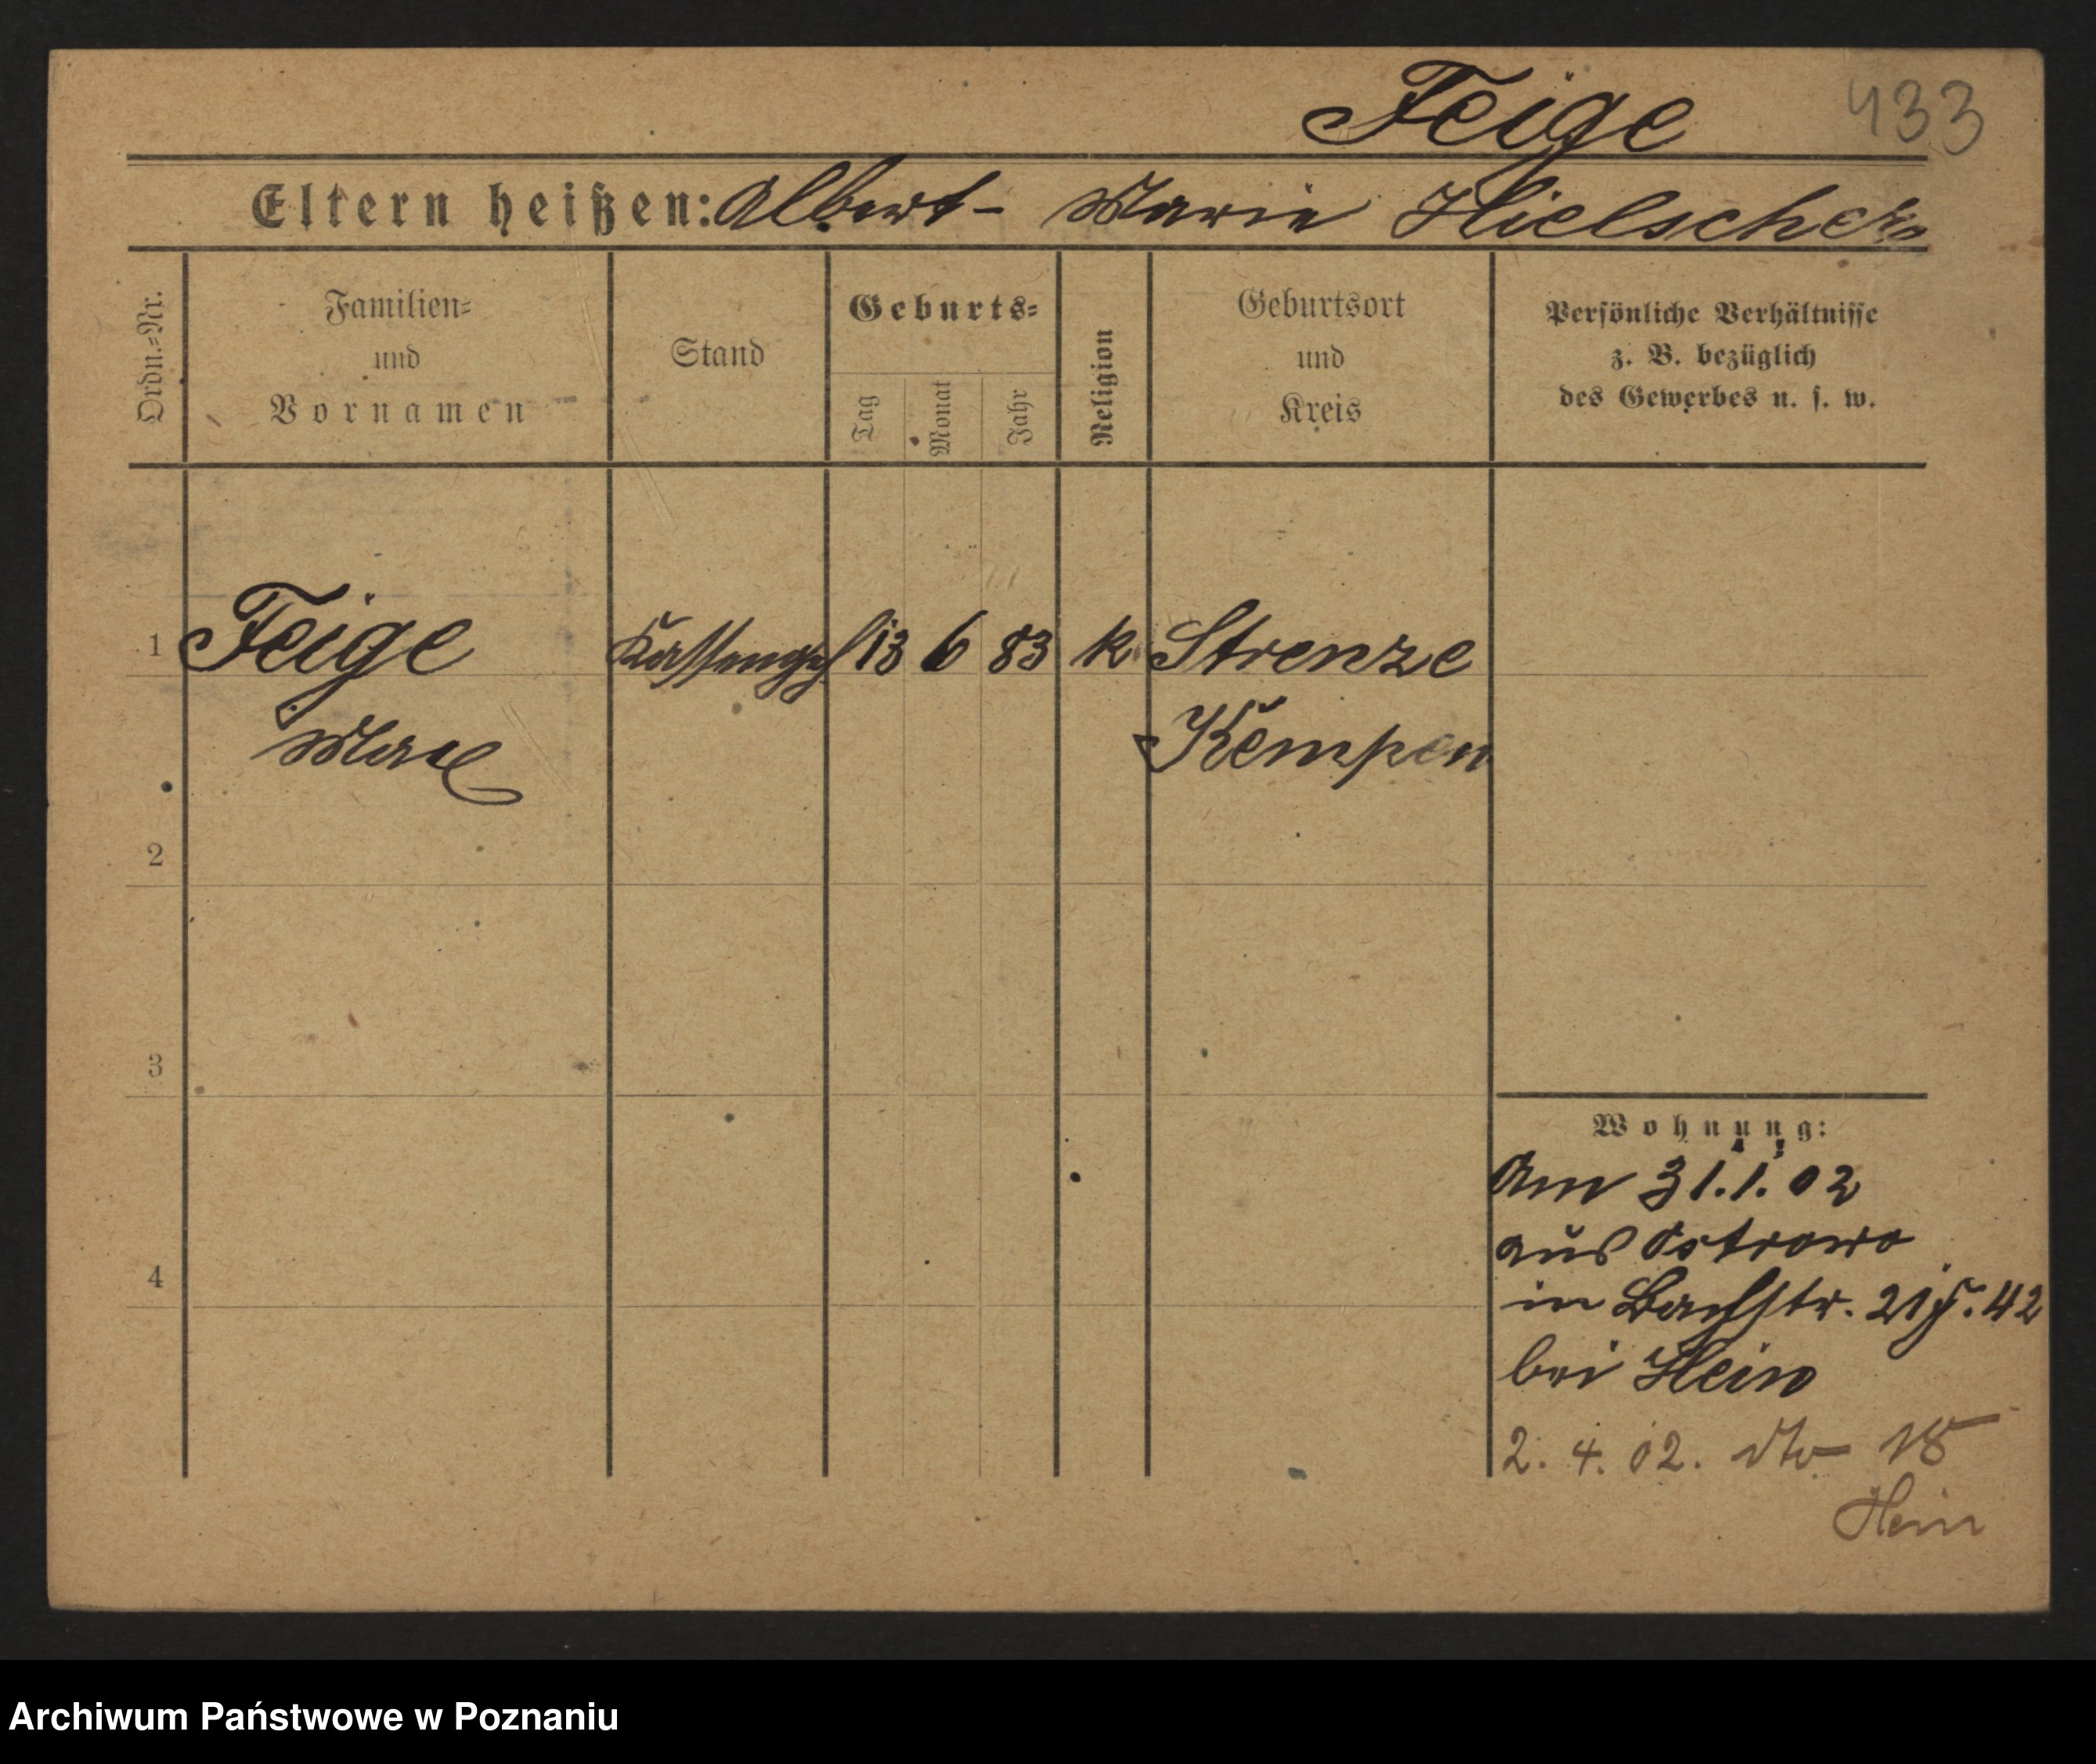 Feige 433
Eltern heißen: Albert - Marie Hielscher
Ordn.-Nr.
Familien-
und
Vornamen
Stand
Geburts-
Tag
Monat
Jahr
Religion
Geburtsort
und
Kreis
Persönliche Verhältnisse
z. B. bezüglich
des Gewerbes u. s. w.
1 Feige Kassengeh 13 6 83 k Strenze
Max Kempen
2
3
4
Wohnung:
Am 31.1.02
aus Ostrowo
in Bachstr. 21 J. 42
bei Hein
2. 4. 02. dto 18
Hein
Archiwum Państwowe w Poznaniu